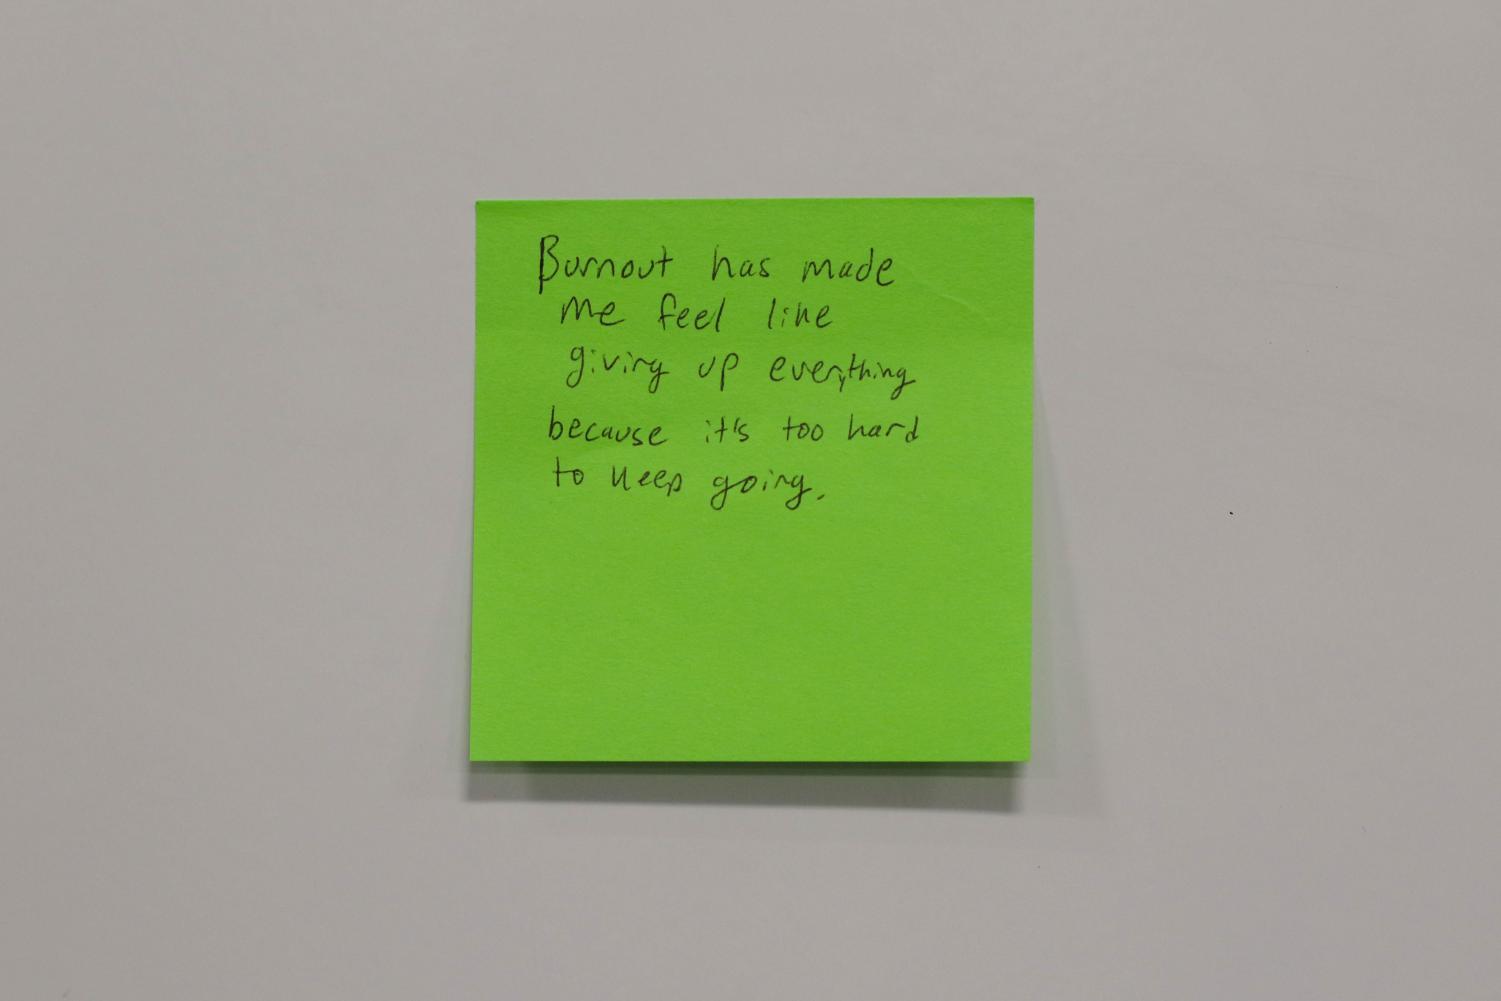 Burnout has made
me feel like
giving up everything
because it's too hard
to keep going.